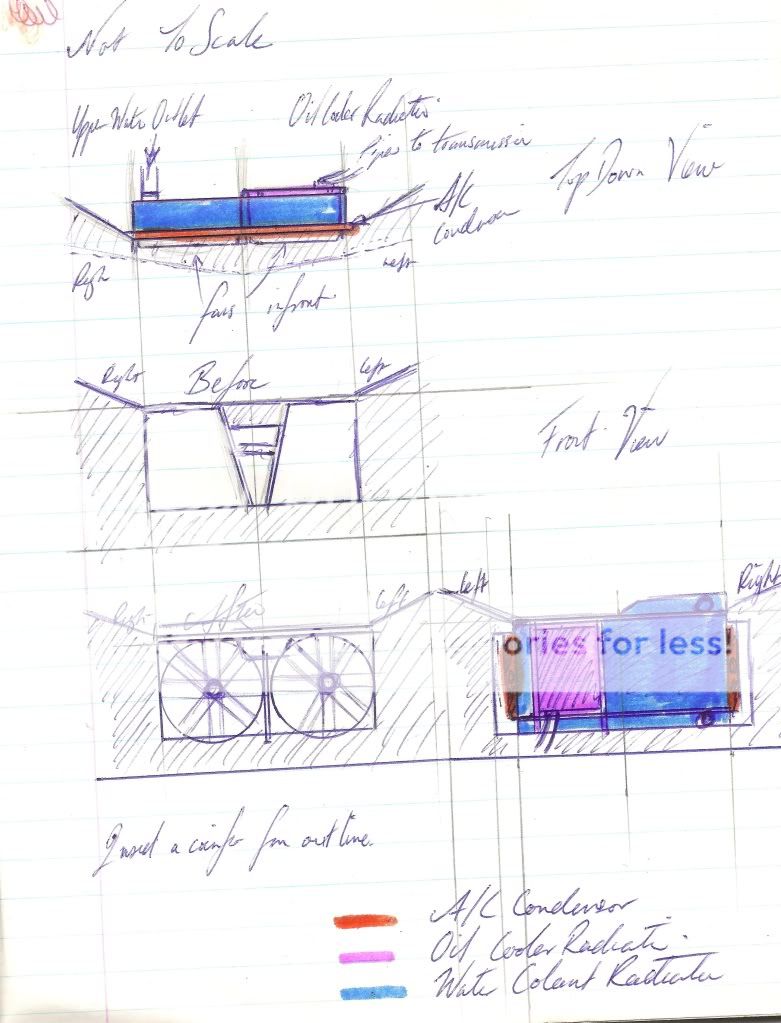 Not To Scale
Upper Water Outlet
Oil Cooler Radiator
Pipes to transmission
Top Down View
A/C
Condensor
Right
Left
fans infront.
Right
Before
Left
Front View
Right
After
Left
Left
Right
ories for less!
I used a
for fan outline.
A/C Condensor
Oil Cooler Radiator.
Water Colant Radiator